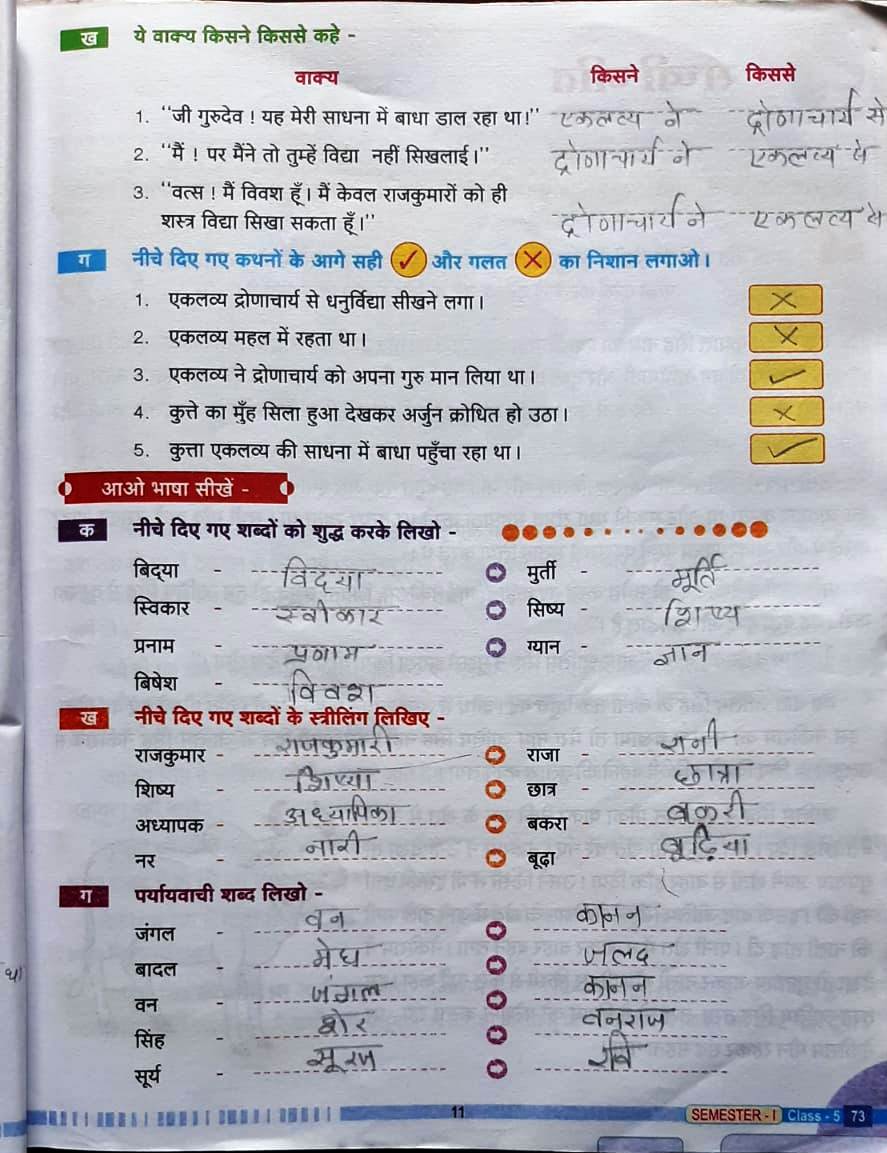 ख ये वाक्य किसने किससे कहे -
वाक्य किसने किससे
1. “जी गुरुदेव ! यह मेरी साधना में बाधा डाल रहा था!” एकलव्य ने द्रोणाचार्य से
2. “मैं ! पर मैंने तो तुम्हें विद्या नहीं सिखलाई।” द्रोणाचार्य ने एकलव्य से
3. “वत्स ! मैं विवश हूँ। मैं केवल राजकुमारों को ही
शस्त्र विद्या सिखा सकता हूँ।” द्रोणाचार्य ने एकलव्य से
ग नीचे दिए गए कथनों के आगे सही ✓ और गलत ✗ का निशान लगाओ।
1. एकलव्य द्रोणाचार्य से धनुर्विद्या सीखने लगा। ✗
2. एकलव्य महल में रहता था। ✗
3. एकलव्य ने द्रोणाचार्य को अपना गुरु मान लिया था। ✓
4. कुत्ते का मुँह सिला हुआ देखकर अर्जुन क्रोधित हो उठा। ✗
5. कुत्ता एकलव्य की साधना में बाधा पहुँचा रहा था। ✓
आओ भाषा सीखें -
क नीचे दिए गए शब्दों को शुद्ध करके लिखो -
बिद्या - विद्या मुर्ती - मूर्ति
स्विकार - स्वीकार सिष्य - शिष्य
प्रनाम - प्रणाम ग्यान - ज्ञान
बिषेश - विवश
ख नीचे दिए गए शब्दों के स्त्रीलिंग लिखिए -
राजकुमार - राजकुमारी राजा - रानी
शिष्य - शिष्या छात्र - छात्रा
अध्यापक - अध्यापिका बकरा - बकरी
नर - नारी बूढ़ा - बूढ़िया
ग पर्यायवाची शब्द लिखो -
जंगल - वन कानन
बादल - मेघ जलद
वन - जंगल कानन
सिंह - शेर वनराज
सूर्य - सूरज रवि
11 SEMESTER - I Class - 5 73